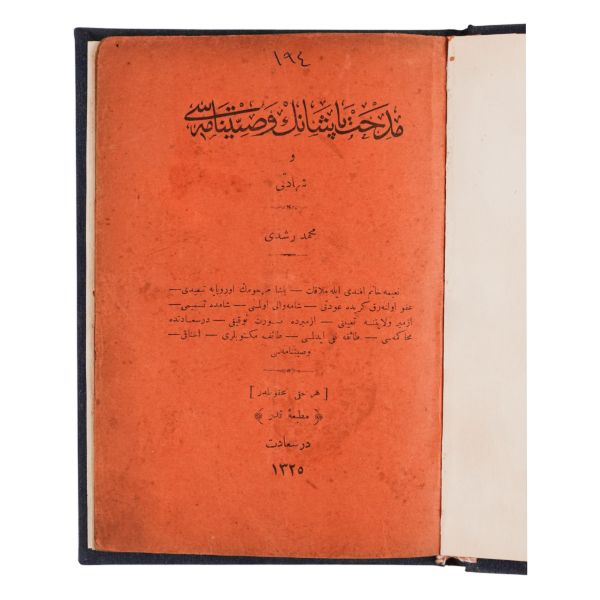 ١٩٤
مدحت پاشانك وصیتنامه‌سی
و
شهادتی
محمد رشدی
نعیمه خانم افندی ایله ملاقات — پاشا مرحومك اوروپایه تبعیدی —
عفو اولنه‌رق كریده عودتی — شامه والی اولسی — شامده تنسیقی —
ازمیر ولایتنه تعیینی — ازمیرده صورت توقیفی — درسعادتده
محاكمه‌سی — طائفه نفی ایدلسی — طائفده مكتوبلری — اختناقی —
وصیتنامه‌سی
[ هر حقی محفوظدر ]
﴿ مطبعهٔ قدر ﴾
درسعادت
١٣٢٥